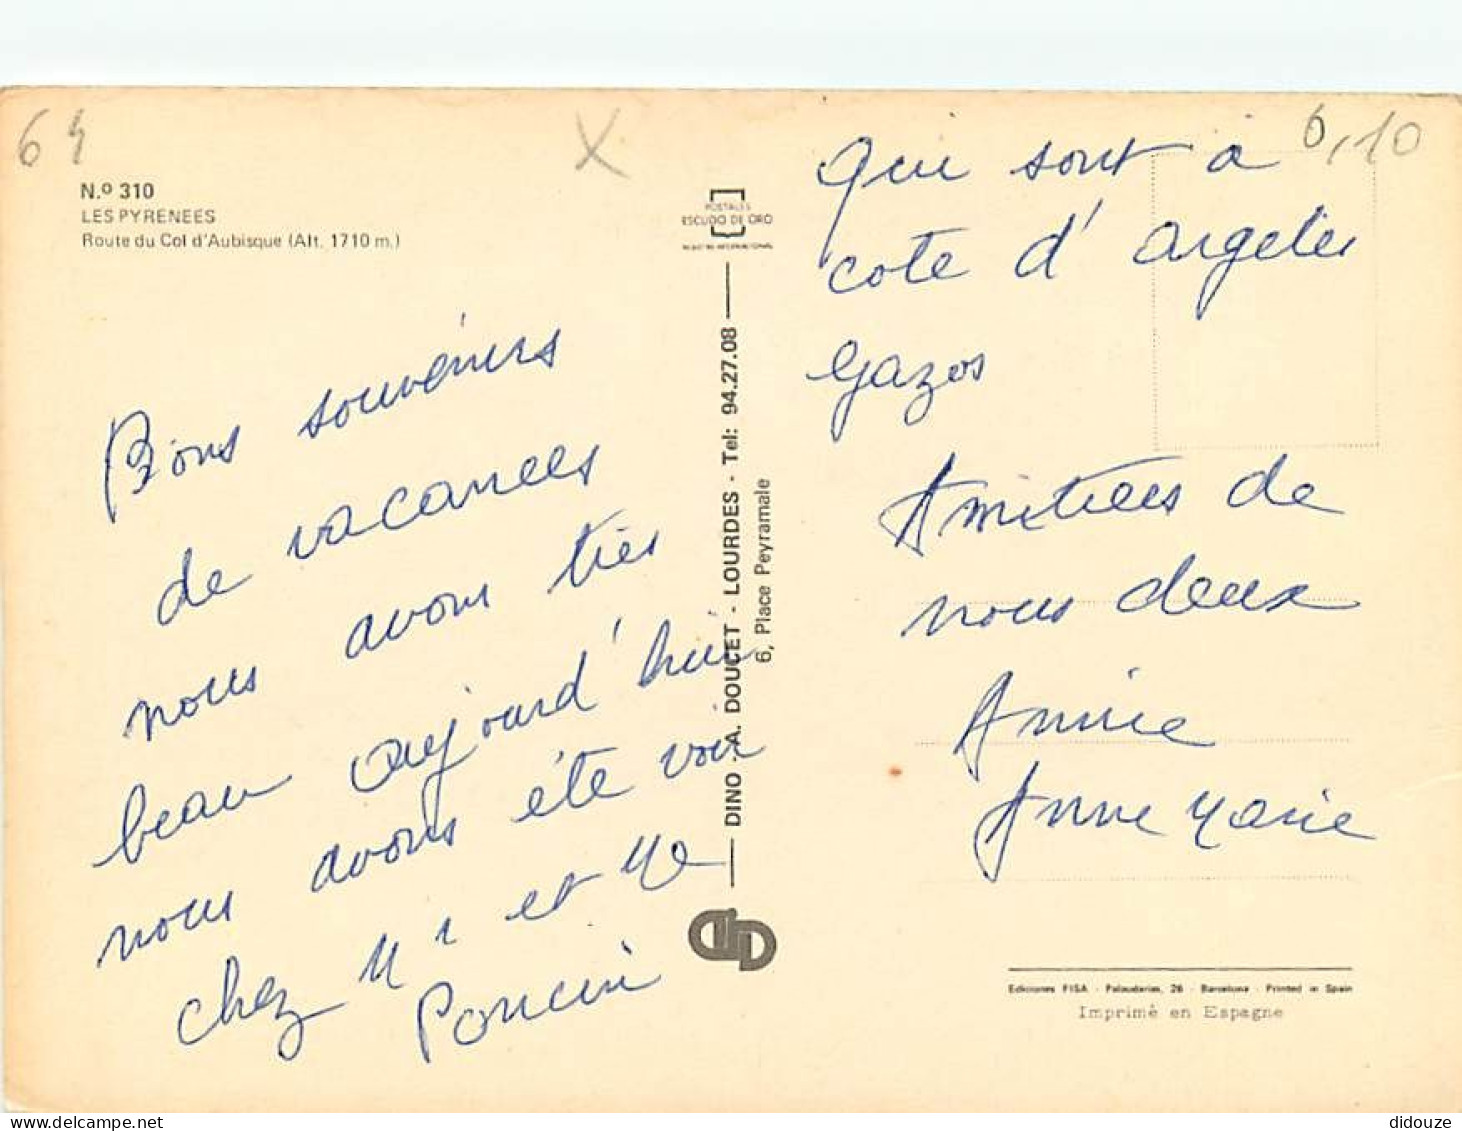 64
X
6,10
N.º 310
LES PYRENEES
Route du Col d'Aubisque (Alt. 1710 m.)
Bons souvenirs
de vacances
nous avons très
beau aujourd'hui
nous avons été voir
chez Mr et Me
Poncin
POSTALES
ESCUDO DE ORO
REGISTRO INTERNACIONAL
DINO - A. DOUCET - LOURDES - Tel: 94.27.08
6, Place Peyramale
qui sont à
cote d'argeles
gazos
Amitiées de
nous deux
Annie
Anne Marie
Ediciones FISA - Palaudarias, 26 - Barcelona - Printed in Spain
Imprimé en Espagne
didouze